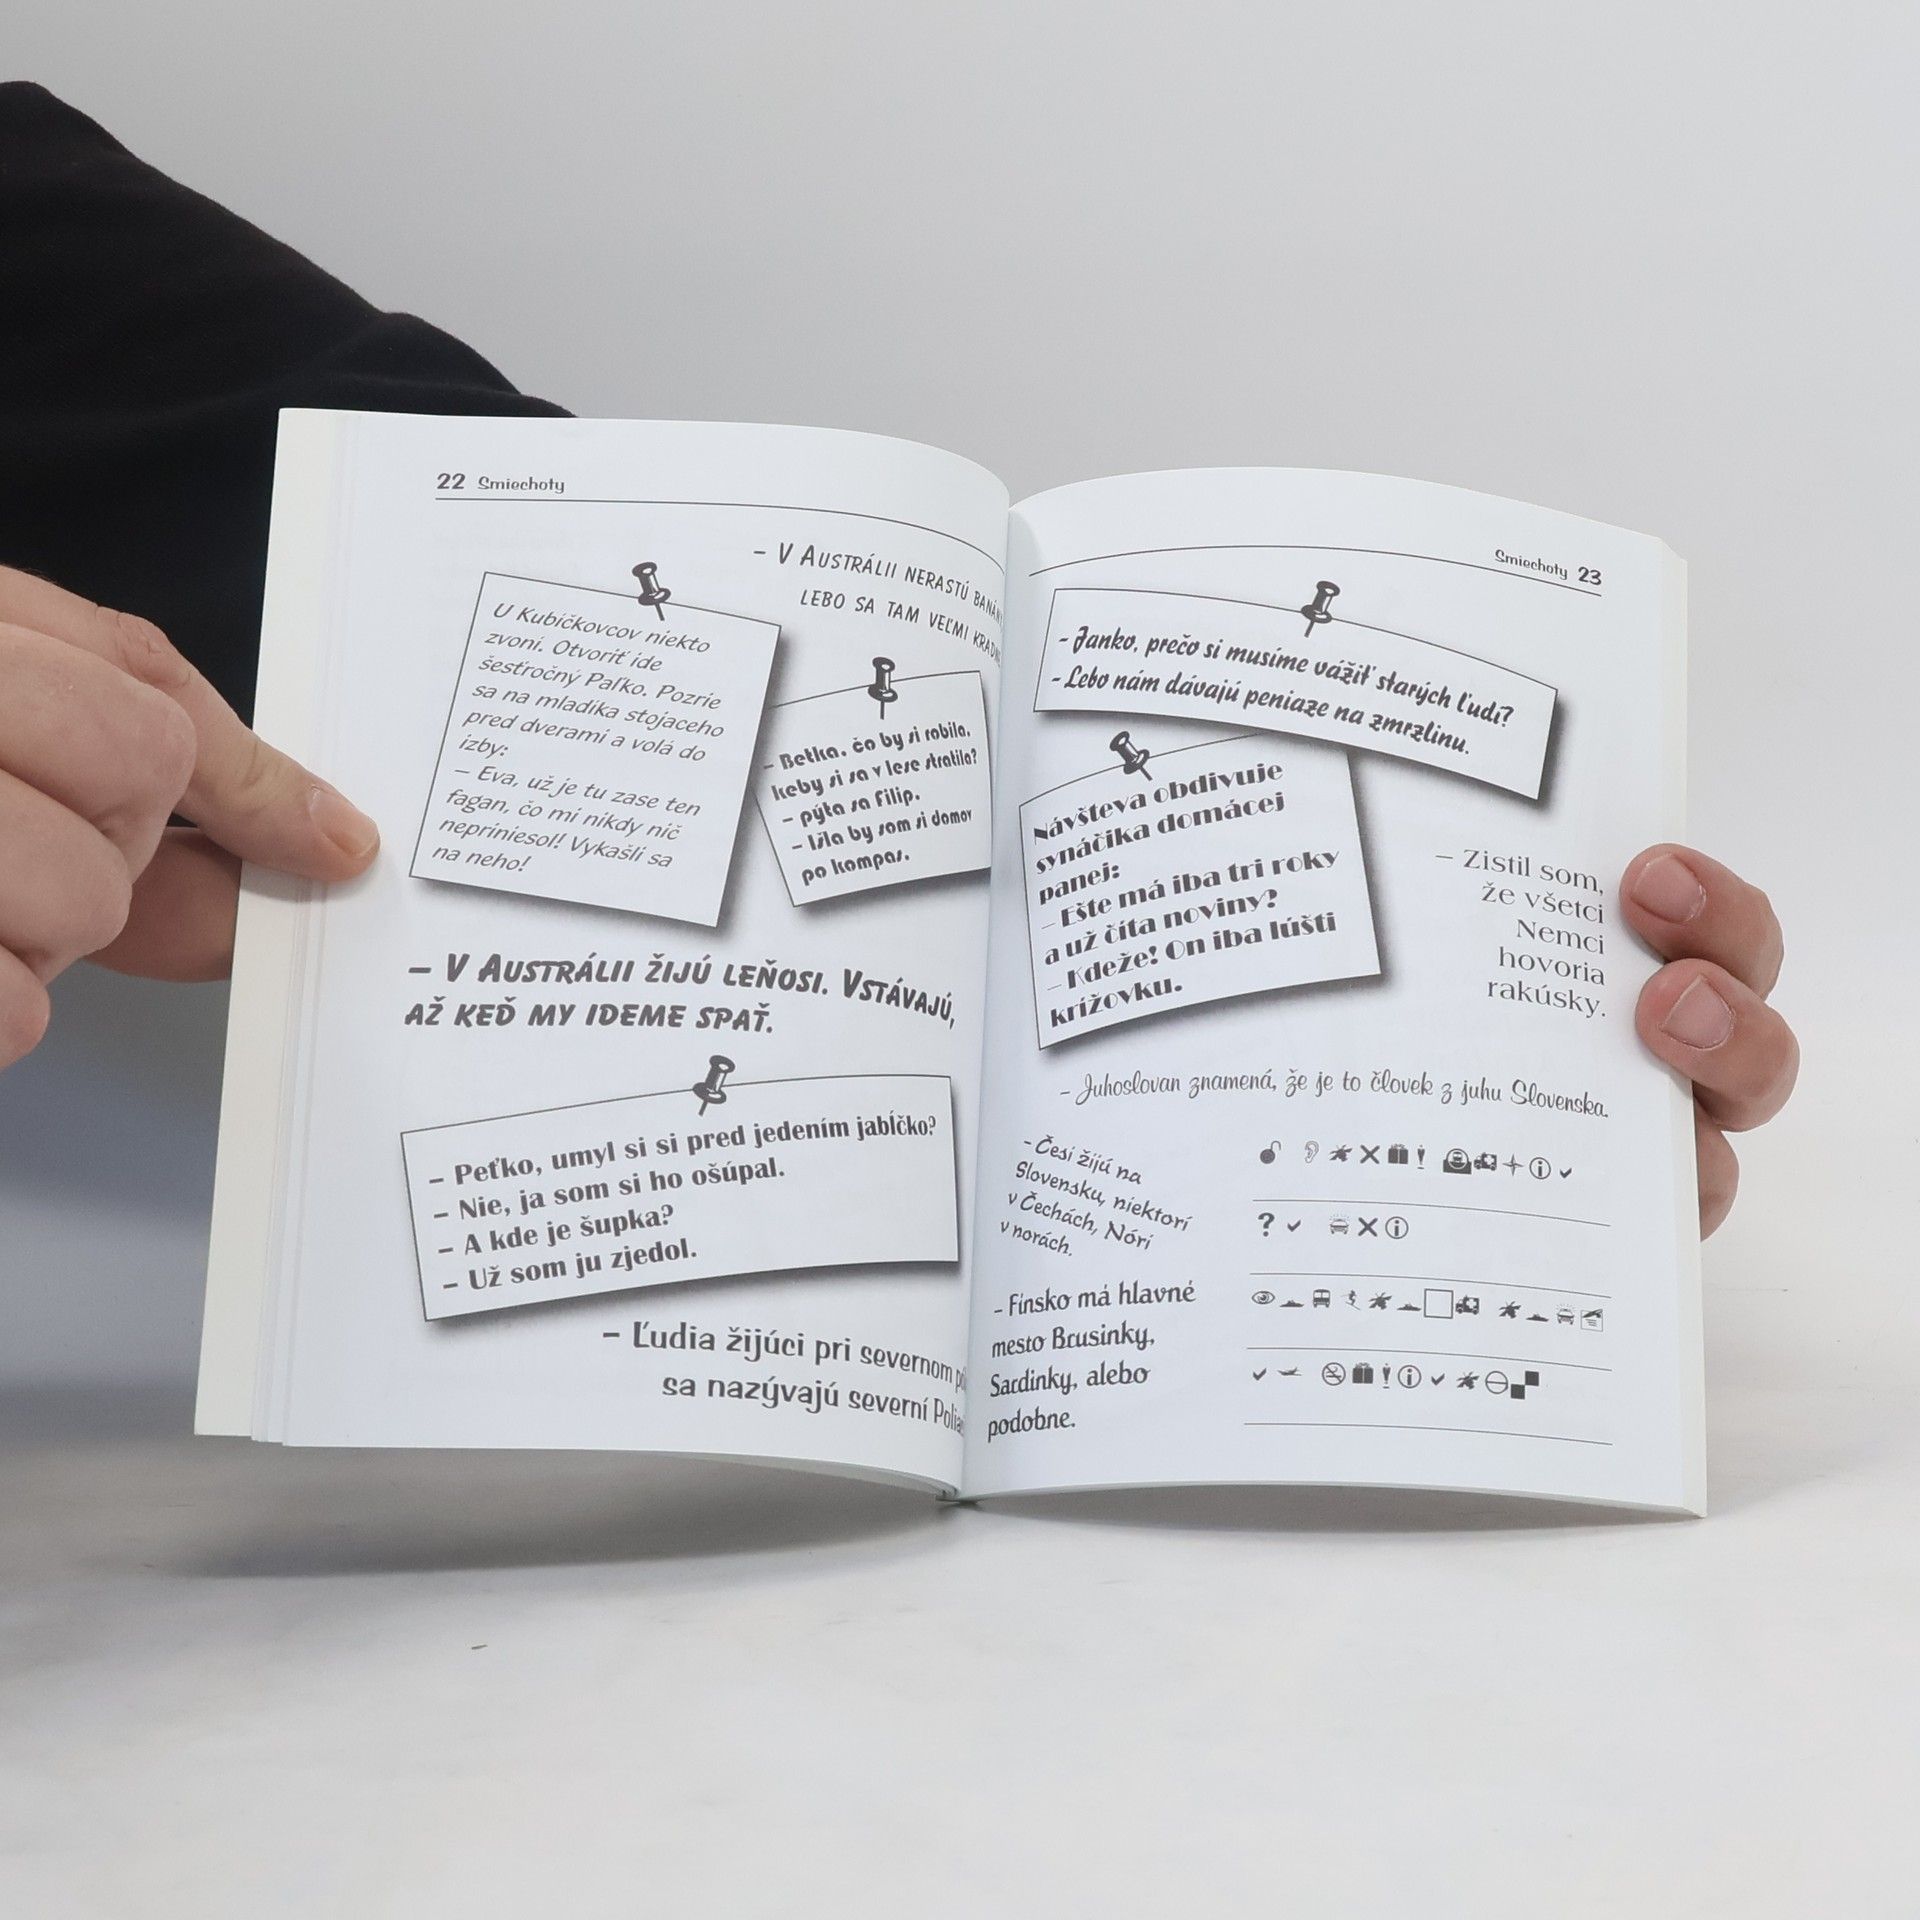 22 Smiechoty
– V Austrálii nerastú
lebo sa tam veľmi
U Kubíčkovcov niekto
zvoní. Otvoriť ide
šesťročný Paľko. Pozrie
sa na mladíka stojaceho
pred dverami a volá do
izby:
– Eva, už je tu zase ten
fagan, čo mi nikdy nič
nepriniesol! Vykašli sa
na neho!
– Betka, čo by si robila,
keby si sa v lese stratila?
– pýta sa Filip.
– Išla by som si domov
po kompas.
– V Austrálii žijú leňosi. Vstávajú,
až keď my ideme spať.
– Peťko, umyl si si pred jedením jabĺčko?
– Nie, ja som si ho ošúpal.
– A kde je šupka?
– Už som ju zjedol.
– Ľudia žijúci pri severnom
sa nazývajú severní
Smiechoty 23
- Janko, prečo si musíme vážiť starých ľudí?
- Lebo nám dávajú peniaze na zmrzlinu.
Návšteva obdivuje
synáčika domácej
panej:
– Ešte má iba tri roky
a už číta noviny?
– Kdeže! On iba lúšti
krížovku.
– Zistil som,
že všetci
Nemci
hovoria
rakúsky.
– Juhoslovan znamená, že je to človek z juhu Slovenska.
- Česi žijú na
Slovensku, niektorí
v Čechách, Nóri
v norách.
– Fínsko má hlavné
mesto Brusinky,
Sardinky, alebo
podobne.